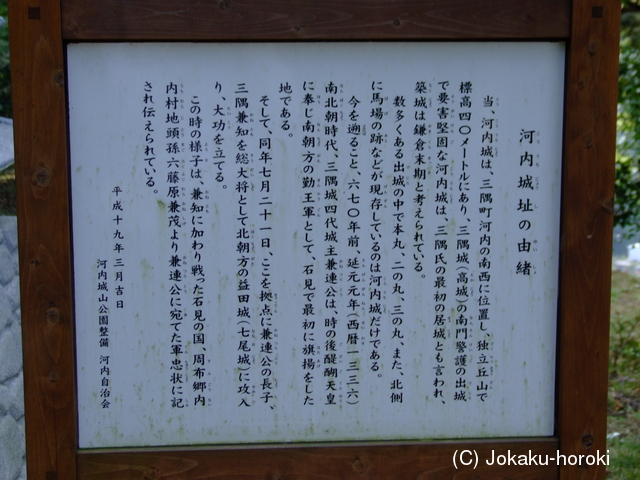 河内城址の由緒
当 河内城は、三隅町河内の南西に位置し、独立丘山で
標高四〇メートルにあり、三隅城(高城)の南門警護の出城
で要害堅固な河内城は、三隅氏の最初の居城とも言われ、
築城は鎌倉末期と考えられている。
数多くある出城の中で本丸、二の丸、三の丸、また、北側
に馬場の跡などが現存しているのは河内城だけである。
今を遡ること、六七〇年前、延元元年(西暦一三三六)
南北朝時代、三隅城四代城主兼連公は、時の後醍醐天皇
に奉じ南朝方の勤王軍として、石見で最初に旗揚をした
地である。
そして、同年七月二十一日、ここを拠点に兼連公の長子、
三隅兼知を総大将として北朝方の益田城(七尾城)に攻入
り、大功を立てる。
この時の様子は、兼知に加わり戦った石見の国、周布郷内
内村地頭孫六藤原兼茂より兼連公に宛てた軍忠状に記
され伝えられている。
平成十九年三月吉日
河内城山公園整備 河内自治会
(C) Jokaku-horoki